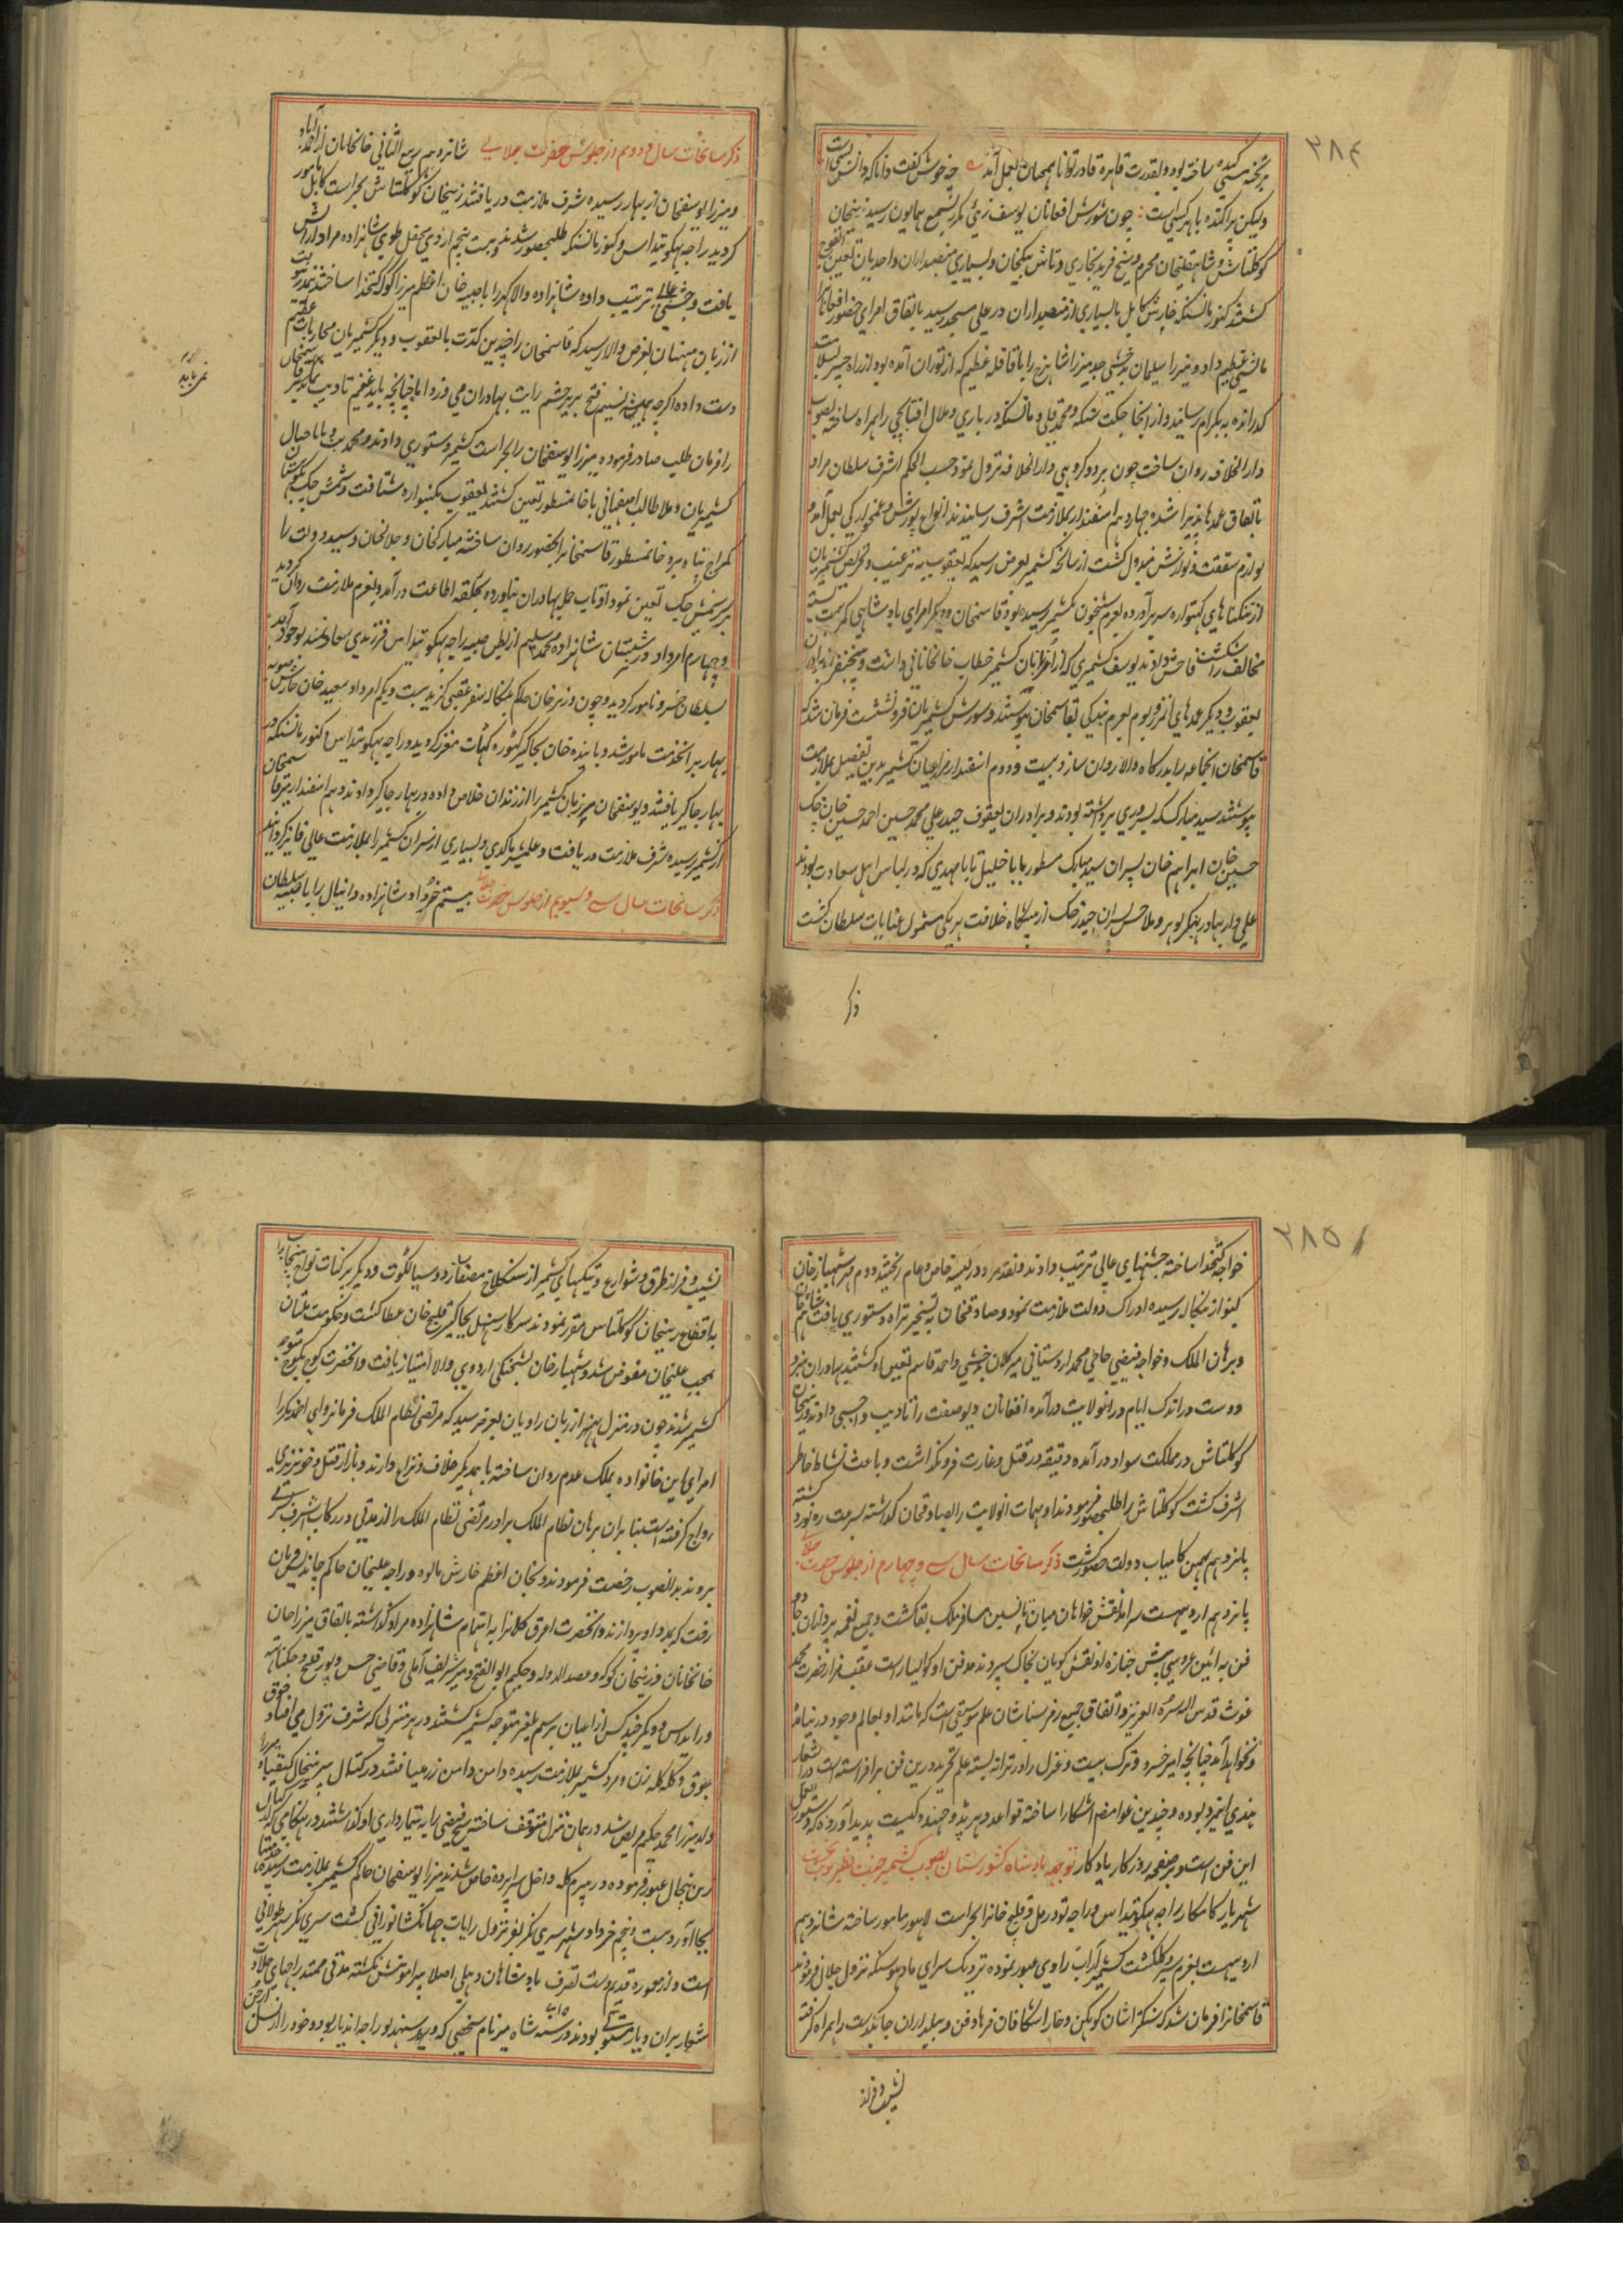 ۲۸۴
ساخته بود و بقدرت قاهره قادر توانا همچنان بعمل آمد چه خوش گفت دانا که دانش بسیار است
ولیکن پراکنده با هر کسی است چون شورش افغانان یوسف زئی مکرر بسمع همایون رسید زینخان
کوکلتاش و شاهقلیخان محرم و شیخ فرید بخاری و تاش بیکخان و بسیاری منصبداران و احدیان تعین
گشتند کنور مانسنگه کابل با بسیاری از منصبداران در علی مسجد رسید باتفاق امرای حضور افغانانرا
مالش عظیم داد و میرزا سلیمان جد میرزا شاهرخ را با قافله عظیم که از توران آمده بود از راه خیبر بسلامت
گذرانده به بکرام رسانید و از آنجا جگت سنگه و محمد قلی و مانسنگه درباری و ملال افتابچی را همراه ساخته بصوب
دارالخلافه روان ساخت چون بدو کروهی دارالخلافه نزول نمود حسب الحکم اشرف سلطان مراد
باتفاق عمدها پذیرا شده چهاردهم اسفندار بملازمت اشرف رسانیدند انواع پرسش و غمخوارگی بعمل آمد و
لوازم شفقت و نوازش مبذول گشت از سانحه کشمیر بعرض رسید که یعقوب به ترغیب و تحریص کشمیریان
از تنگناهای کهتواره سر بر آورده بعزم شبخون کشمیر رسیده بود قاسمخان و دیگر امرای بادشاهی کمر همت بسته
مخالف را شکست فاحش دادند یوسف کشمیری که از کشمیر خطاب خانخانانی داشت و برادران
یعقوب و دیگر عمدهای آن مرز و بوم بعزم بندگی بقاسمخان پیوستند و شورش کشمیریان فرو نشست فرمان شد که
قاسمخان انجماعه را بدرگاه والا روان سازد بیست و دوم اسفندار مذ اعیان کشمیر بدین تفصیل بملازمت
پیوستند سید مبارک که بسروری برداشته بودند و برادران یعقوب حیدر علی محمد حسین احمد حسین خان چک
حسین خان ابراهیم خان پسران سید مبارک مسطور بابا خلیل بابا مهدی که در لباس اهل سعادت بودند
علی دار بهادر هنکر لوهر و ملا حسن پسران حیدر چک از پیشگاه خلافت هر یکی مشمول عنایات سلطان گشت
ذکر
ذکر سانحات سال سی و دوم از جلوس حضرت جلالی شانزدهم ربیع الثانی خانخانان از احمدآباد
و میرزا یوسفخان از بهار رسیده شرف ملازمت دریافتند زینخان کوکلتاش بحراست کابل مامور
گردید راجه بهگونتداس و کنور مانسنگه طلبحضور شدند و بیست پنجم اردی محفل طوی شاهزاده مراد آرایش
یافت و جشنی عالی ترتیب داده شاهزاده والا گهر را با صبیه خان اعظم میرزا کوکه کتخدا ساختند
از زبان منهیان بعرض والا رسید که قاسمخان را چندین کرت با یعقوب و دیگر کشمیریان محاربات عظیم
دست داده اگرچه همیشه نسیم فتح بر پرچم رایت بهادران می وزد اما چنانچه باید غنیم تادیب نمی یابد
را فرمان طلب صادر فرموده میرزا یوسفخان را بحراست کشمیر دستوری دادند و محمد بت و بابا
کشمیریان و ملا طالب اصفهانی با خانمسطور تعین گشتند یعقوب بکهتواره شتافت و شمس چک بکوهستان
کمراج پناه برد خانمسطور قاسمخانرا بحضور روان ساخته مبارکخان و جلالخان و سید دولت را
بر سر شمس چک تعین نمود او تاب حمله بهادران نیاورده بحلقه اطاعت در آمده بعزم ملازمت روان گردید
و چهارم امرداد در شبستان شاهزاده محمد سلیم از بطن صبیه راجه بهگونتداس فرزندی سعادتمند بوجود آمد
بسلطان خسرو نامور گردید و چون وزیر خان حاکم بنگاله سفر عقبی گزید بیست و یکم امرداد سعید خان حارس صوبه
بهار بر انخدمت مامور شد و پاینده خان بجاگیر گهوره گهات معزز گردید و راجه بهگونتداس و کنور مانسنگه در
بهار جاگیر یافتند و یوسفخان مرزبان کشمیر را از زندان خلاص داده در بهار جاگیر دادند و دهم اسفندار قاسمخان
از کشمیر رسیده شرف ملازمت دریافت و علیشیر ماکری و بسیاری از سران کشمیر را بملازمت عالی فایز گردانید
ذکر سانحات سال سی و سیوم از جلوس حضرت جلالی بیستم خرداد شاهزاده دانیال را با صبیه سلطان
نمی یابد
۲۸۵
خواجه کتخدا ساخته جشنهای عالی ترتیب دادند و نقد مراد در کیسه خاص و عام ریختند دوم مهر شهباز خان
کنبو از بنگاله رسیده ادراک دولت ملازمت نمود و صادقخان به تسخیر تیراه دستوری یافت
و برهان الملک و خواجه فیضی حاجی محمد اردستانی میر کلان بدخشی و احمد قاسم تعین او گشتند بهادران
دوست در اندک ایام در انولایت در آمده افغانان دیو صفت را تادیب واجبی دادند و زینخان
کوکلتاش در مملکت سواد در آمده دقیقه در قتل و غارت فرو نگذاشت و باعث نشاط خاطر
اشرف گشت کوکلتاش را طلبحضور فرمودند او مهمات انولایت را بصادقخان گذاشته بسرعت ره نورد گشته
پانزدهم بهمن کامیاب دولت حضور گشت ذکر سانحات سال سی و چهارم از جلوس حضرت جلالی
پانزدهم اردیبهشت سرامد نقش خواهان میان تانسین مسافر ملک بقا گشت و جمیع نغمه پردازان
فن به ائین عروسی پیش جنازه او نقش گویان بخاک سپردند مدفن او گوالیار است عقب مزار حضرت محمد
غوث قدس الله سره العزیز و اتفاق جمیع رمز شناسان علم موسیقی است که مانند او بعالم وجود در نیامده
و نخواهد آمد چنانچه امیر خسرو ترک بیت و غزل را در ترانه بسته علم تجرید درین فن بر افراشته است و اشعار
هندی اینمرد بوده و چندین غوامض اشکارا ساخته قواعد دهرپد و چهند و گیت پدید آورده که دستور العمل
این فن است و بر صفحه روزگار یادگار توجه بادشاه کشورستان بصوب کشمیر جنت نظیر
شهریار کامکار راجه بهگونتداس و راجه تودرمل و قلیچ خانرا بحراست لاهور مامور ساخته شانزدهم
اردیبهشت بعزم سیر گلگشت کشمیر از آب راوی عبور نموده نزدیک سرای مادهو سنگه نزول جلال فرمودند
قاسمخانرا فرمان شد که سنگتراشان کوهکن و خارا شکافان فرهاد فن و بیلداران چابکدست را همراه گرفته
نشیب و فراز
نشیب و فراز طرق و شوارع و تنگیهای کشمیر از سنگلاخ مصفا سازد و سیالکوت و دیگر پرگنات نواح پنجابرا
به اقطاع زینخان کوکلتاش مقرر نمودند سرکار سنبل بجاگیر قلیچ خان عطا گشت و حکومت ملتان
بمحب علیخان مفوض شد و شهباز خان بشحنگی اردوی والا امتیاز یافت و انحضرت کوچ بکوچ متوجه
کشمیر شدند چون در منزل بهنبر از زبان راویان بعرض رسید که مرتضی نظام الملک فرمانروای احمدنگر را
امرای این خانواده بملک عدم روان ساخته با همدیگر خلاف و نزاع دارند و بازار قتل و خونریزی
رواج گرفته است بنابر ان برهان نظام الملک برادر مرتضی نظام الملک را که از مدتی در رکاب اشرف بسر
برد بدانصوب رخصت فرمودند و بخان اعظم حارس مالوه و راجه علیخان حاکم خاندیس فرمان
رفت که بمدد او پردازند و انحضرت اغرق کلانرا به اهتمام شاهزاده مراد گذاشته باتفاق میرزا جان
خانخانان و زینخان کوکه و عضدالدوله و حکیم ابوالفتح و میر شریف آملی و قاضی حسن و پور قلیچ و جگناتهه
و رایداس و دیگر چند کس از اعیان برسم ایلغر متوجه کشمیر گشتند در هر منزلی که شرف نزول می افتاد جوق
بجوق و گله گله زن و مرد کشمیر بملازمت رسیده دامن دامن زر می یافتند در کتال پیر پنجال کیقباد
ولد میرزا محمد حکیم مریض شد در همان منزل متوقف ساخته شیخ فیضی را به تیمارداری او گذاشتند و در هنگامی که از کتال
پیر پنجال عبور فرموده در هیره پور داخل سراپرده خاص شدند میرزا یوسفخان حاکم کشمیر بملازمت رسیده
بجا آورد بیست و پنجم خرداد شهر سری نگر بفر نزول رایات جهانگشا نورانی گشت سری نگر شهر طولانی
است و از معموره قدیم و دست تصرف بادشاهان دهلی اصلا پیرامونش نگشته مدتی ممتد راجهای جلادت
شعار بران دیار مستولی بودند و در سنه شاه میر نام شخصی که و خود را از نسل ارجن